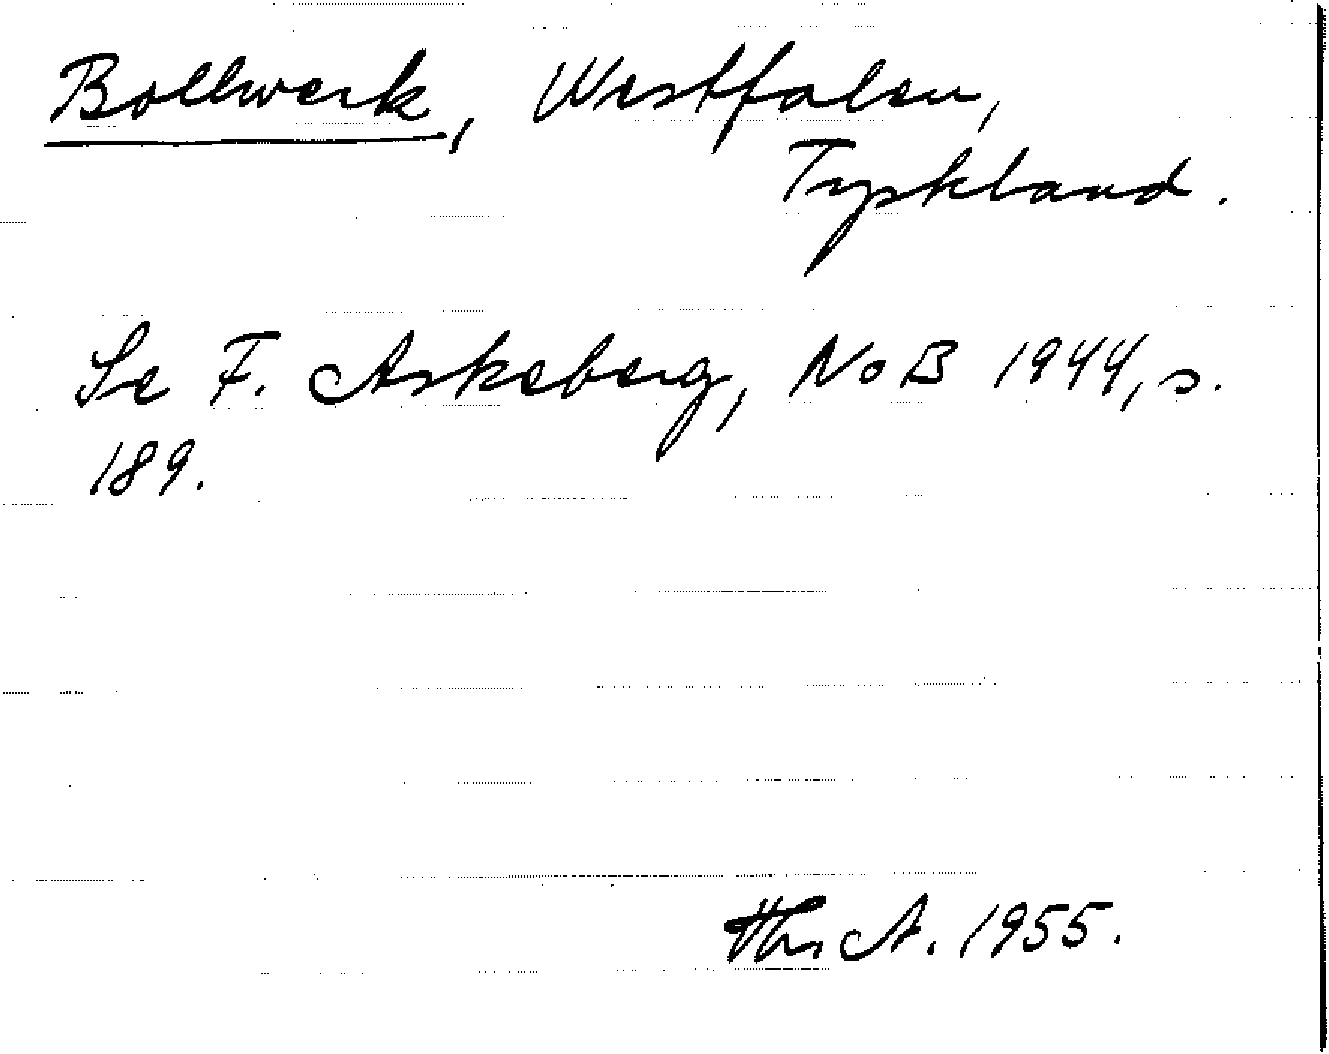 Bollwerk, Westfalen,
Tyskland.
Se F. Askeberg, NoB 1944, s.
189.
A. 1955.